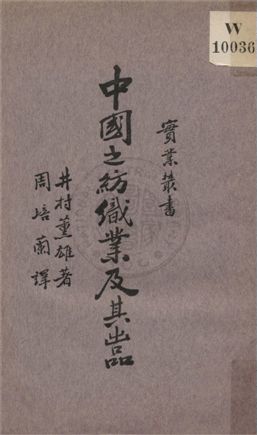 W
10036
實業叢書
中國之紡織業及其出品
井村薰雄著
周培蘭譯